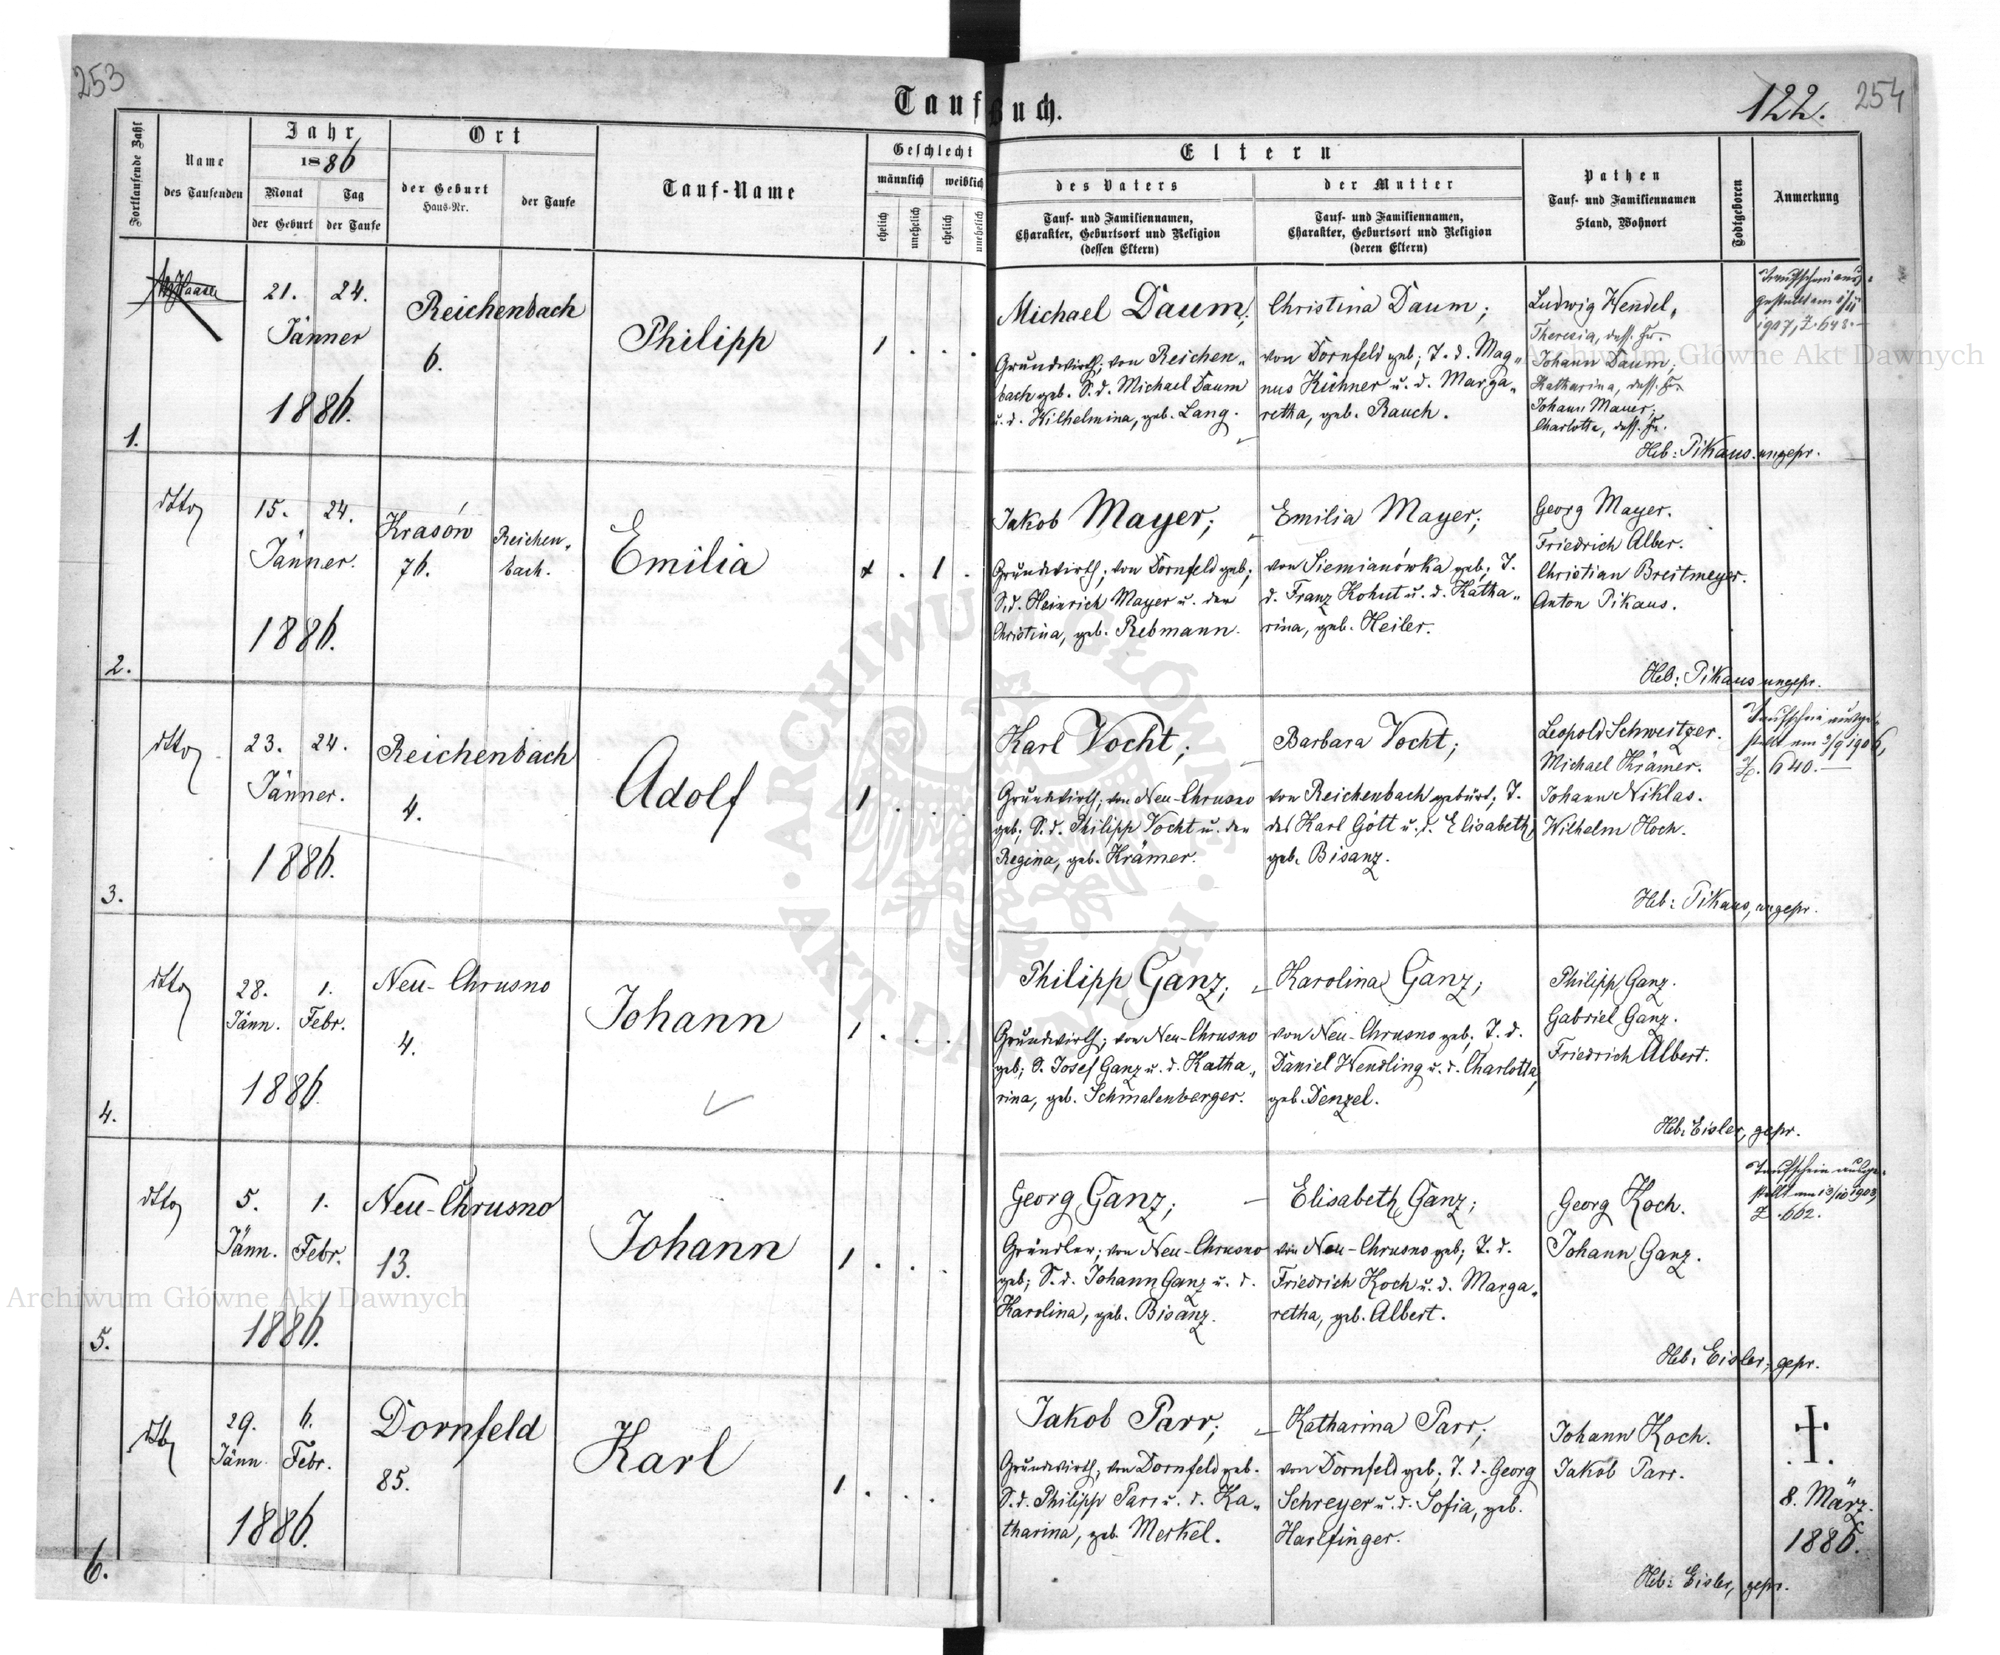 253
Taufbuch.
122.
254
Fortlaufende Zahl
Name
des Taufenden
Jahr
1886
Monat
der Geburt
Tag
der Taufe
Ort
der Geburt
Haus-Nr.
der Taufe
Tauf-Name
Geschlecht
männlich
weiblich
ehelich
unehelich
ehelich
unehelich
Eltern
des Vaters
Tauf- und Familiennamen,
Charakter, Geburtsort und Religion
(dessen Eltern)
der Mutter
Tauf- und Familiennamen,
Charakter, Geburtsort und Religion
(deren Eltern)
Pathen
Tauf- und Familiennamen
Stand, Wohnort
Todtgeboren
Anmerkung
1.
21. 24.
Jänner
1886.
Reichenbach
6.
Philipp
1 . . .
Michael Daum;
Grundwirth; von Reichen-
bach geb. S. d. Michael Daum
u. d. Wilhelmina, geb. Lang.
Christina Daum;
von Dornfeld geb; T. d. Mag-
nus Kühner u. d. Marga-
retha, geb. Rauch.
Ludwig Wendel,
Theresia, dess. Fr.
Johann Daum;
Katharina, dess. Fr.
Johann Mauer;
Charlotte, dess. Fr.
Heb: Pikaus. ungepr.
Taufschein aus-
gestellt am
1907, Z. 648.—
2.
dtto
15. 24.
Jänner.
1886.
Krasów
76.
Reichen-
bach.
Emilia
. 1 .
Jakob Mayer;
Grundwirth; von Dornfeld geb;
S. d. Heinrich Mayer u. der
Christina, geb. Rebmann.
Emilia Mayer;
von Siemianówka geb; T.
d. Franz Kohut u. d. Katha-
rina, geb. Heiler.
Georg Mayer.
Friedrich Alber.
Christian Breitmeyer.
Anton Pikaus.
Heb: Pikaus ungepr.
3.
dtto
23. 24.
Jänner.
1886.
Reichenbach
4.
Adolf
1 . . .
Karl Vocht;
Grundwirth; von Neu-Chrusno
geb; S. d. Philipp Vocht u. der
Regina, geb. Krämer.
Barbara Vocht;
von Reichenbach gebürt; T.
des Karl Gött u. d. Elisabeth,
geb. Bisanz.
Leopold Schweitzer.
Michael Krämer.
Johann Niklas.
Wilhelm Hoch.
Heb: Pikaus, ungepr.
Taufschein ausge-
stellt am 2/9 1906,
Z. 640.—
4.
dtto
28. 1.
Jänn. Febr.
1886.
Neu-Chrusno
4.
Johann
1 . . .
Philipp Ganz;
Grundwirth; von Neu-Chrusno
geb; S. Josef Ganz u. d. Katha-
rina, geb. Schmalenberger.
Karolina Ganz;
von Neu-Chrusno geb; T. d.
Daniel Wendling u. d. Charlotta,
geb. Denzel.
Philipp Ganz.
Gabriel Ganz.
Friedrich Albert.
Heb: Eisler, gepr.
5.
dtto
5. 1.
Jänn. Febr.
1886.
Neu-Chrusno
13.
Johann
1 . . .
Georg Ganz;
Gründler; von Neu-Chrusno
geb; S. d. Johann Ganz u. d.
Karolina, geb. Bisanz.
Elisabeth Ganz;
von Neu-Chrusno geb; T. d.
Friedrich Koch u. d. Marga-
retha, geb. Albert.
Georg Koch.
Johann Ganz.
Heb: Eisler, gepr.
Taufschein ausge-
stellt am 13/10 1903,
Z. 662.
6.
dtto
29. 6.
Jänn. Febr.
1886.
Dornfeld
85.
Karl
1 . . .
Jakob Parr;
Grundwirth; von Dornfeld geb.
S. d. Philipp Parr u. d. Ka-
tharina, geb. Merkel.
Katharina Parr;
von Dornfeld geb; T. d. Georg
Schreyer u. d. Sofia, geb.
Harlfinger.
Johann Koch.
Jakob Parr.
Heb: Eisler, gepr.
8. März
1886.
Archiwum Główne Akt Dawnych
Archiwum Główne Akt Dawnych
ARCHIWUM GŁÓWNE AKT DAWNYCH